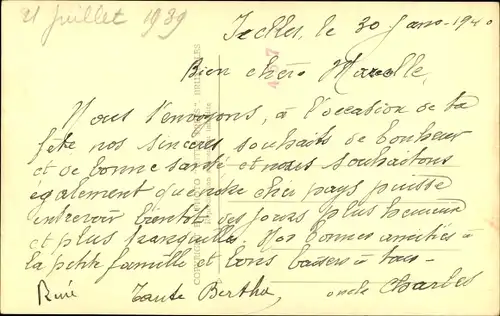 21 juillet 1939
Ixelles, le 30 Janv. 1940
Bien chère Marcelle,
Nous t'envoyons, à l'occasion de ta
fête nos sincères souhaits de bonheur
et de bonne santé et nous souhaitons
également que notre cher pays puisse
entrevoir bientôt des jours plus heureux
et plus tranquilles. Nos bonnes amitiés à
la petite famille et bons baisers à tous.
René Tante Bertha, oncle Charles